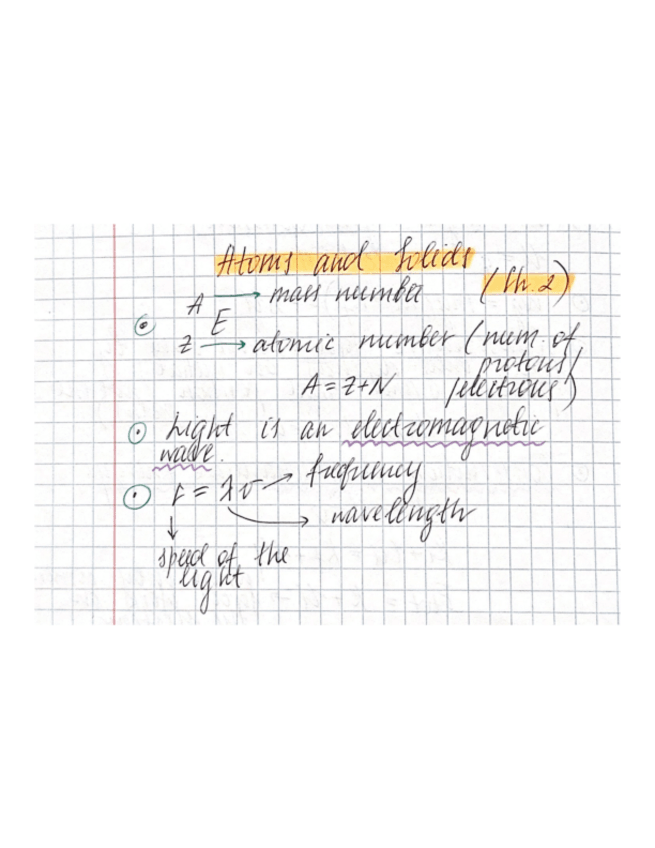 Atoms and Solids
(Ch. 2)
A → mass number
E
Z → atomic number (num. of
protons/
A = Z + N /electrons)
Light is an electromagnetic
wave.
c = λν → frequency
→ wavelength
speed of the
light